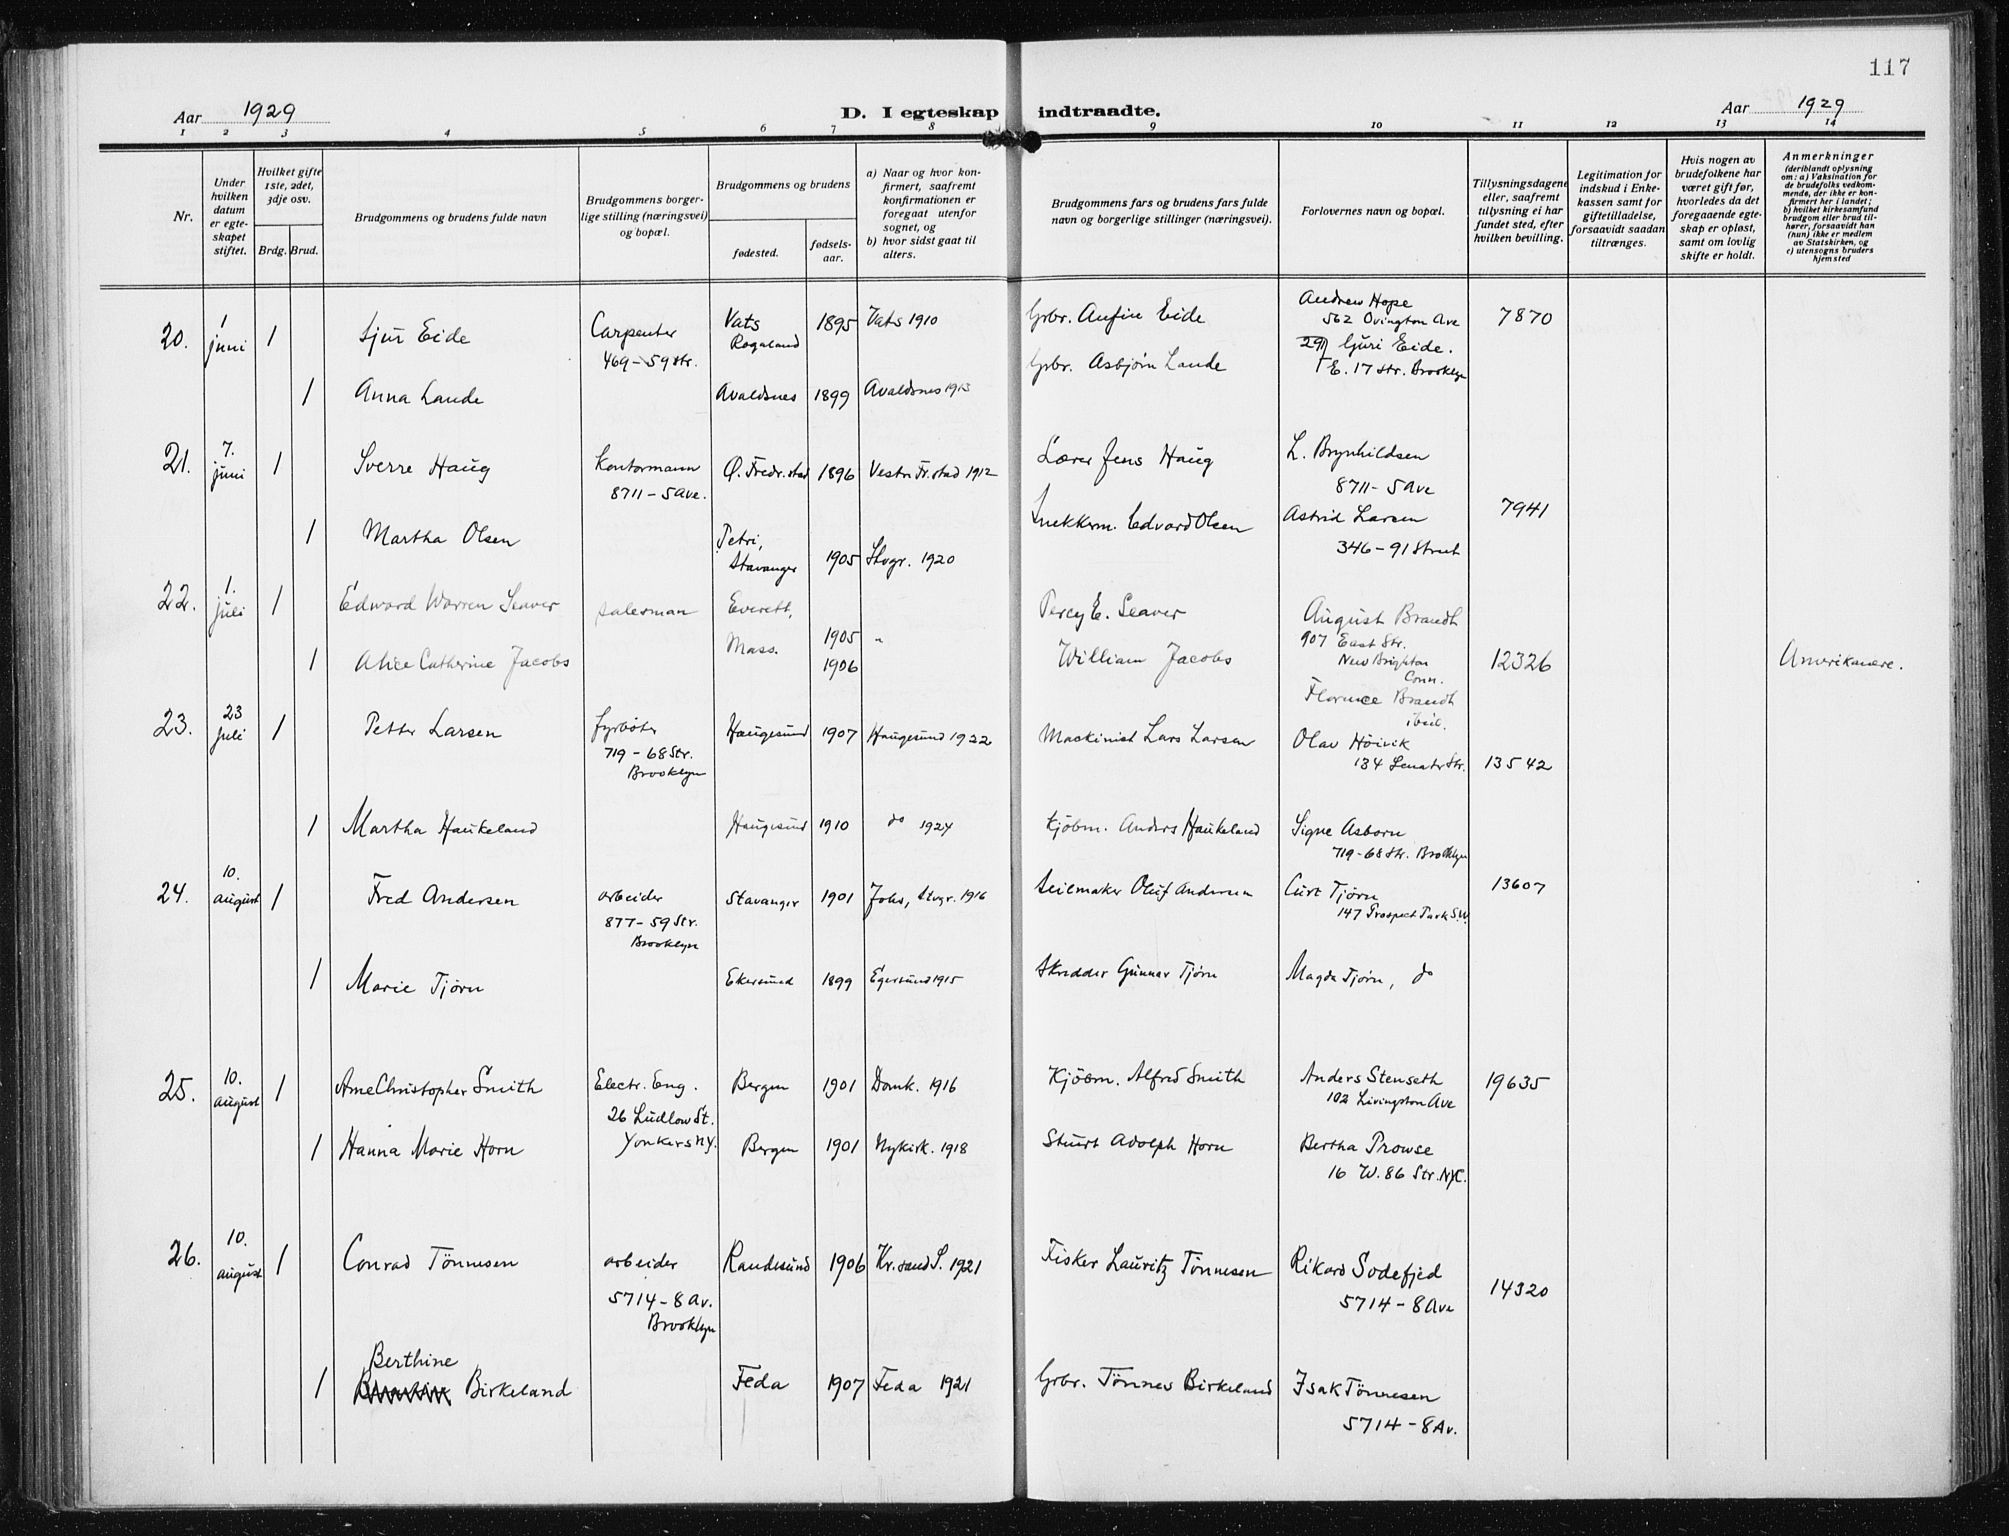 117
Aar 1929
D. I egteskap indtraadte.
Aar 1929
1 2 3 4 5 6 7 8 9 10 11 12 13 14
Nr.
Under hvilken datum er egteskapet stiftet.
Hvilket gifte 1ste, 2det, 3dje osv.
Brdg. Brud.
Brudgommens og brudens fulde navn
Brudgommens borgerlige stilling (næringsvei) og bopæl.
Brudgommens og brudens
fødested.
fødselsaar.
a) Naar og hvor konfirmert, saafremt konfirmationen er foregaat utenfor sognet, og
b) hvor sidst gaat til alters.
Brudgommens fars og brudens fars fulde navn og borgerlige stillinger (næringsvei).
Forlovernes navn og bopæl.
Tillysningsdagene eller, saafremt tillysning ei har fundet sted, efter hvilken bevilling.
Legitimation for indskud i Enkekassen samt for giftetilladelse, forsaavidt saadan tiltrænges.
Hvis nogen av brudefolkene har været gift før, hvorledes da det foregaaende egteskap er opløst, samt om lovlig skifte er holdt.
Anmerkninger
(deriblandt oplysning om: a) Vaksination for de brudefolks vedkommende, der ikke er konfirmert her i landet; b) hvilket kirkesamfund brudgom eller brud tilhører, forsaavidt han (hun) ikke er medlem av Statskirken, og c) utensogns bruders hjemsted
20. 1 juni 1 Sjur Eide Carpenter Vats Rogaland 1895 Vats 1910 Grbr. Anfin Eide Andrew Hope 7870
469-59 Str. 562 Ovington Ave
Guri Eide.
E. 17 Str. Brooklyn
1 Anna Lande Avaldsnes 1899 Avaldsnes 1913 Grbr. Asbjørn Lande
21. 7. juni 1 Sverre Haug Kontormann Ø. Fredr.stad 1896 Vestre Fr.stad 1912 Lærer Jens Haug L. Brynhildsen
8711-5 Ave. 8711-5 Ave
1 Martha Olsen Petri, Stavanger 1905 Stvgr. 1920 Snekkerm. Edvard Olsen Astrid Larsen 7941
346-91 Street
22. 1. juli 1 Edward Warren Seaver salesman Everett, Mass. 1905 " Percy E. Seaver August Brandt
907 East Str.
New Brighton
Conn.
1 Alice Catherine Jacobs 1906 William Jacobs Florence Brandt 12326 Amerikanere.
ibid.
23. 23 juli 1 Petter Larsen fyrbøter Haugesund 1907 Haugesund 1922 Maskinist Lars Larsen Olav Höivik 13542
719-68 Str. Brooklyn 134 Senator Str.
1 Martha Haukeland Haugesund 1910 do 1924 Kjöbm. Anders Haukeland Signe Asborn
719-68 Str. Brooklyn
24. 10. august 1 Fred Andersen arbeider Stavanger 1901 Johs, Stvgr. 1916 Seilmaker Oluf Andersen Curt Tjørn 13607
877-59 Str. Brooklyn 147 Prospect Park S.W.
1 Marie Tjørn Ekersund 1899 Egersund 1915 Skredder Gunnar Tjørn Magda Tjørn, do
25. 10. august 1 Arne Christopher Smith Electr. Eng. Bergen 1901 Domk. 1916 Kjöbm. Alfred Smith Anders Stenseth 19635
26 Ludlow St. Yonkers N.Y. 102 Livingston Ave
1 Hanna Marie Horn Bergen 1901 Nykirk. 1918 Stuert Adolph Horn Bertha Prowse
16 W. 86 Str. N.Y.C.
26. 10. august 1 Conrad Tönnesen arbeider Randesund 1906 Kr.sand S. 1921 Fisker Lauritz Tönnesen Rikard Sodefjed 14320
5714-8 Av. Brooklyn 5714-8 Ave
Berthine
1 Birkeland Feda 1907 Feda 1921 Grbr. Tönnes Birkeland Isak Tönnesen
5714-8 Av.